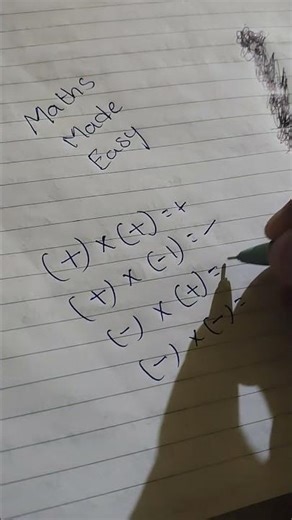 Maths
Made
Easy
(+) × (+) = +
(+) × (-) = -
(-) × (+) =
(-) × (-) =